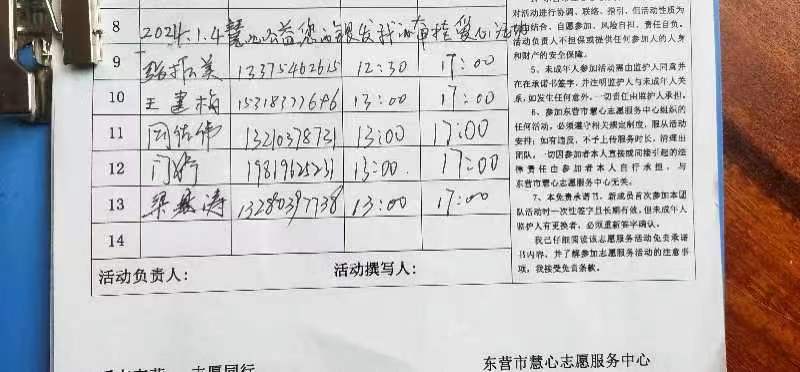 8 2024.1.4慧心公益
9 12:30 17:00
10 王建梅 13:00 17:00
11 13210378731 13:00 17:00
12 19819625231 13:00 17:00
13 梁 涛 13280397738 13:00 17:00
14
活动负责人： 活动撰写人：
志愿同行
对活动进行协调、联络、指引，但活动性质为
结合、自愿参加、风险自担、责任自负。
活动负责人不担保或提供任何参加人的人身
和财产的安全保障。
5、未成年人参加活动需由监护人同意并
在在承诺书签字，并注明监护人与未成年人关
系，如发生任何意外，一切责任由监护人承担。
6、参加东营市慧心志愿服务中心组织的
任何活动，必须遵守相关规定制度，服从活动
安排；如有违反，不予上传服务时长，清理出
团队，一切因参加者本人直接或间接引起的法
律责任由参加者本人自行承担，与
东营市慧心志愿服务中心无关。
7、本免责承诺书，新成员首次参加本团
队活动时一次性签字且长期有效，但未成年人
监护人有更换者，必须重新签字确认。
我已仔细阅读该志愿服务活动免责承诺
书内容，并了解参加志愿服务活动的注意事
项，我接受免责条款。
东营市慧心志愿服务中心